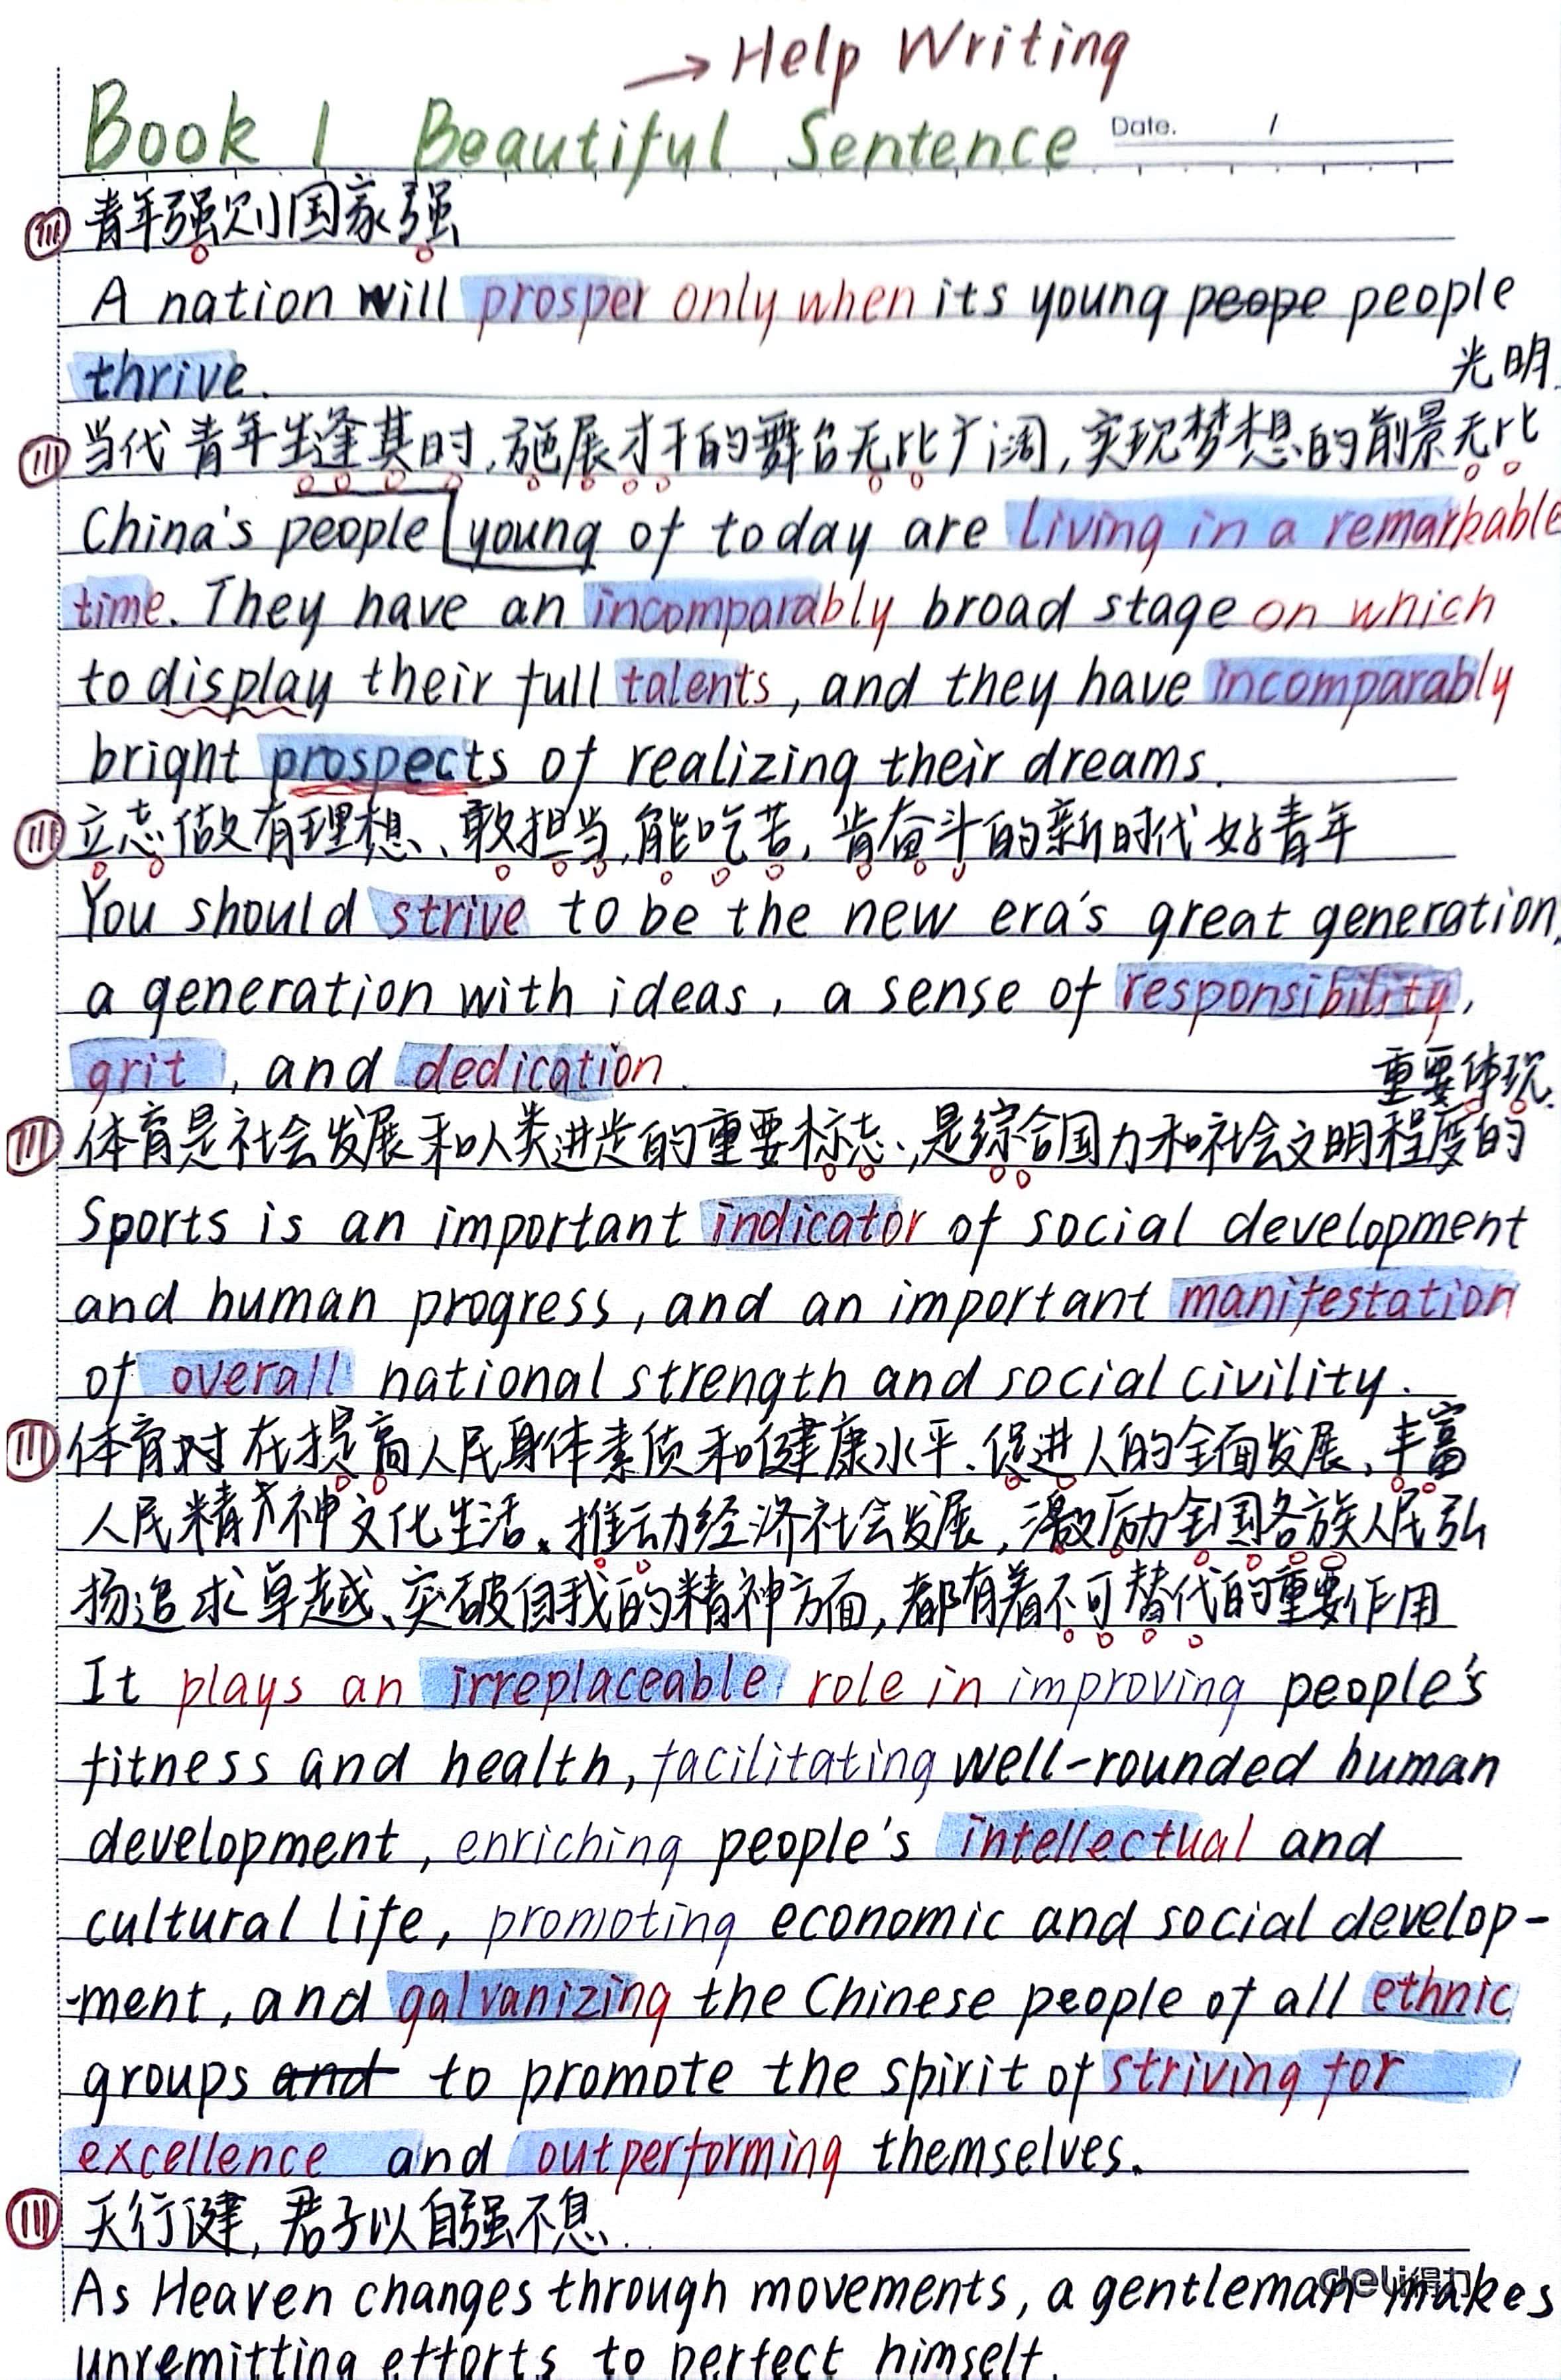 → Help Writing
Book 1 Beautiful Sentence Date. /
青年强则国家强
A nation will prosper only when its young peope people
thrive.
光明.
当代青年生逢其时,施展才干的舞台无比广阔,实现梦想的前景无比
China's people young of today are living in a remarkable
time. They have an incomparably broad stage on which
to display their full talents, and they have incomparably
bright prospects of realizing their dreams.
立志做有理想、敢担当,能吃苦,肯奋斗的新时代好青年
You should strive to be the new era's great generation,
a generation with ideas, a sense of responsibility,
grit, and dedication.
重要体现.
体育是社会发展和人类进步的重要标志,是综合国力和社会文明程度的
Sports is an important indicator of social development
and human progress, and an important manifestation
of overall national strength and social civility.
体育对在提高人民身体素质和健康水平、促进人的全面发展,丰富
人民精神文化生活、推动经济社会发展,激励全国各族人民弘
扬追求卓越、突破自我的精神方面,都有着不可替代的重要作用
It plays an irreplaceable role in improving people's
fitness and health, facilitating well-rounded human
development, enriching people's intellectual and
cultural life, promoting economic and social develop-
-ment, and galvanizing the Chinese people of all ethnic
groups and to promote the spirit of striving for
excellence and outperforming themselves.
天行健,君子以自强不息.
As Heaven changes through movements, a gentleman makes
deli得力
unremitting efforts to perfect himself.